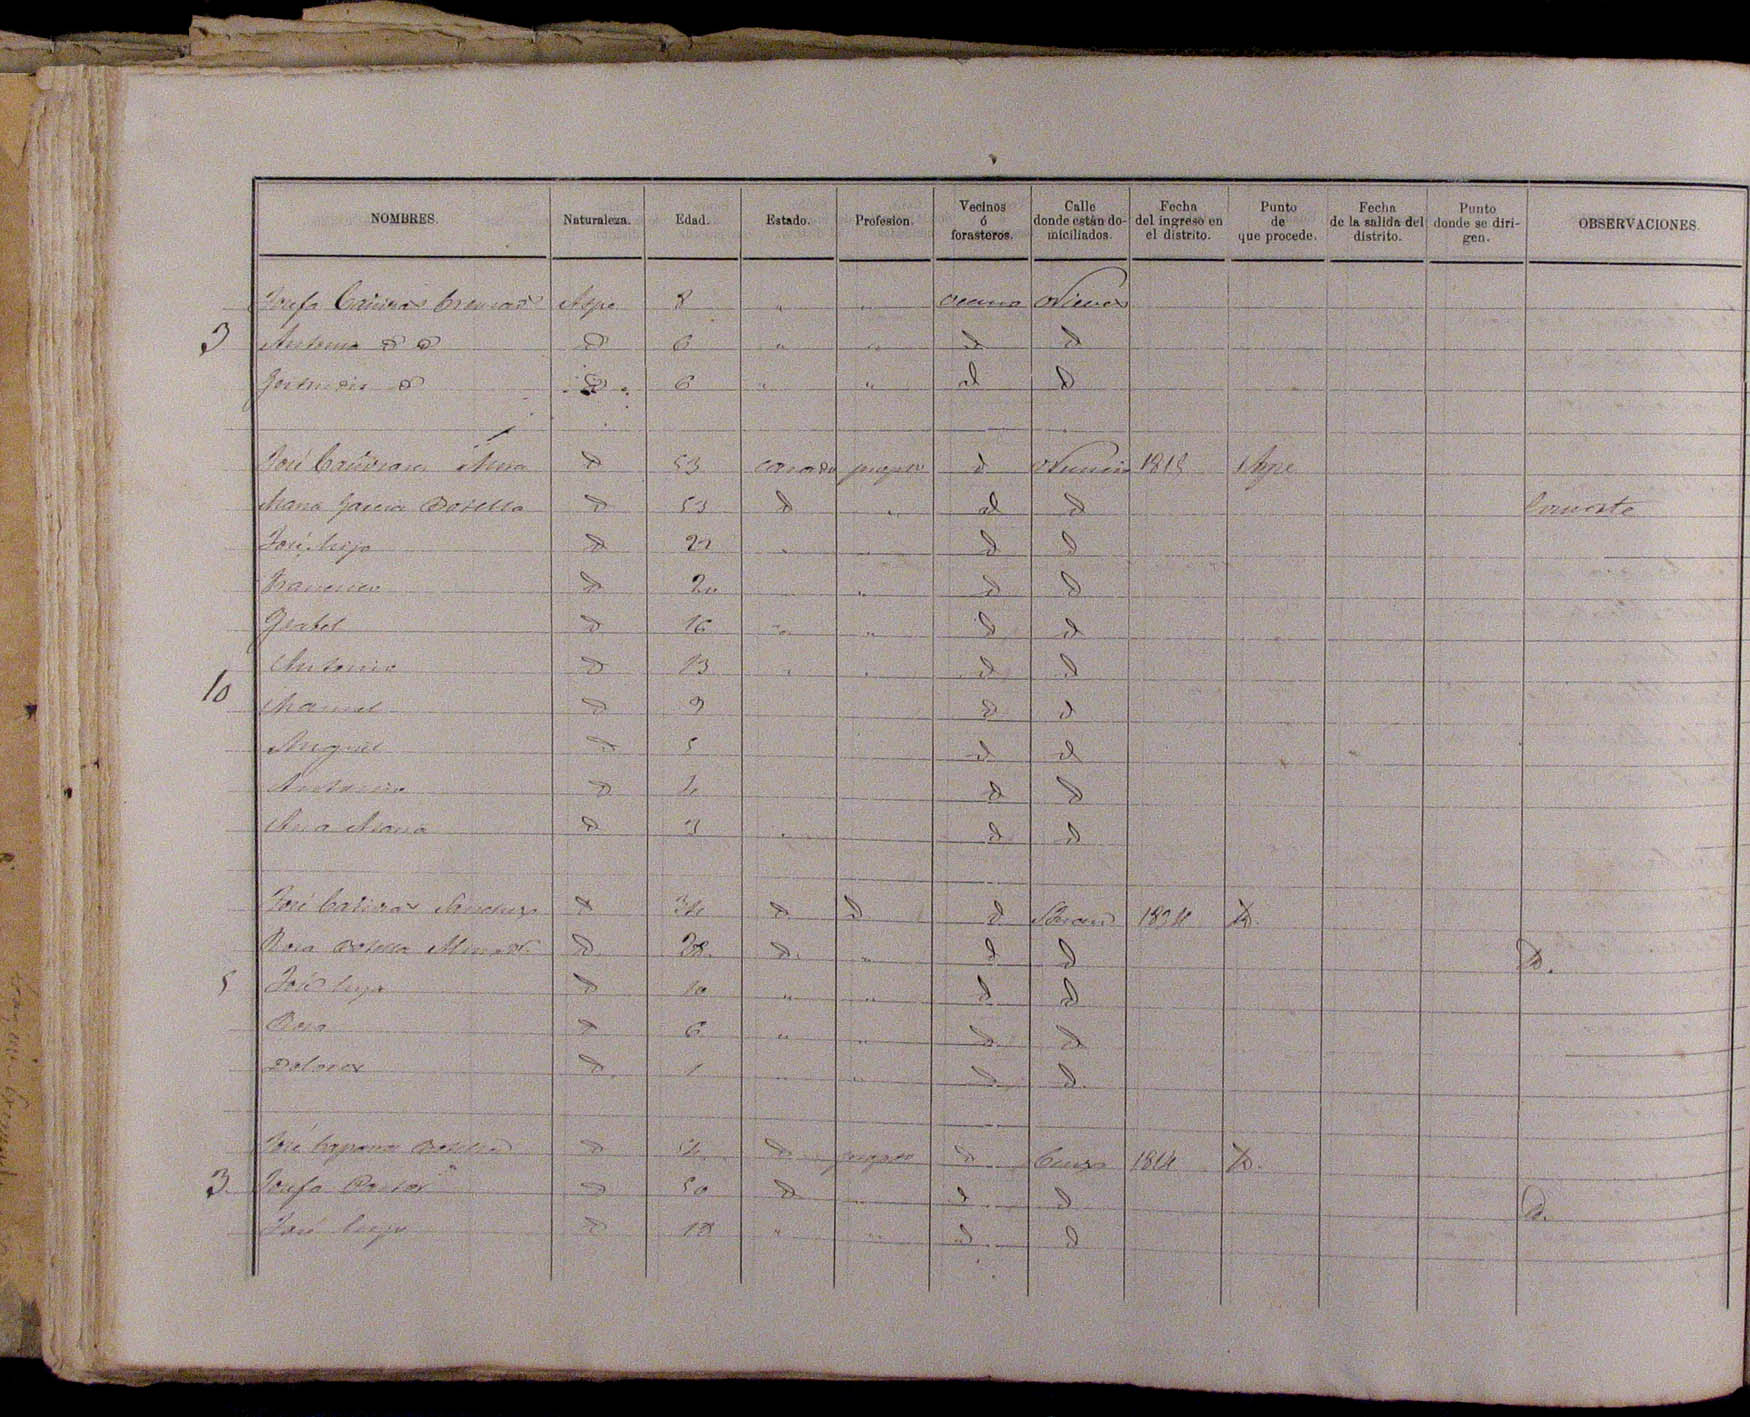 NOMBRES. Naturaleza. Edad. Estado. Profesion. Vecinos ó forasteros. Calle donde están domiciliados. Fecha del ingreso en el distrito. Punto de que procede. Fecha de la salida del distrito. Punto donde se dirigen. OBSERVACIONES.
Josefa Aspe 8 " " vecino Nieves
3 Antonia d d d 6 " " d d
d d 6 " " d d
José d 53 casado d 1818 Aspe
Maria Garcia Botella d 53 d " d d Consorte
José hijo d 22 " " d d
Francisco d 20 " " d d
Ysabel d 16 " " d d
Antonia d 13 " " d d
10 Manuel d 9 d d
Miguel d 5 d d
Antonio d 4 d d
Ana Maria d 3 " d d
José Cañizares Sanchez d 34 d d d 1834 D.
Rosa Botella d 28 d " d d D.
5 José hijo d 10 " " d d
Rosa d 6 " " d d
Dolores d 1 " " d d
José Botella d d d 1814 D.
3 Josefa Pastor d 50 d " d d D.
José hijo d 18 " " d d